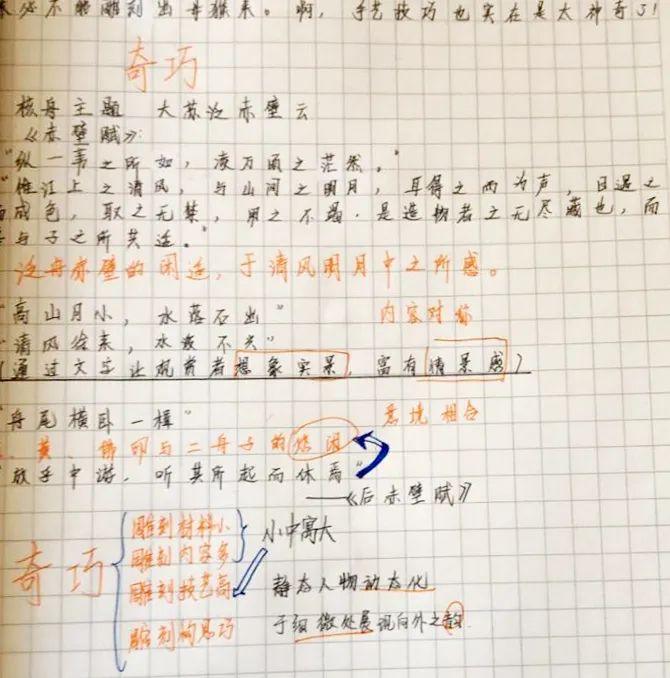 必不能雕刻出母猴来。啊，手艺技巧也实在是太神奇了！
奇巧
核舟主题 大苏泛赤壁云
《赤壁赋》：
"纵一苇之所如，凌万顷之茫然。"
"惟江上之清风，与山间之明月，耳得之而为声，目遇之
而成色，取之无禁，用之不竭．是造物者之无尽藏也，而
与子之所共适。"
泛舟赤壁的闲适，于清风明月中之所感。
"高山月小，水落石出" 内容对称
"清风徐来，水波不兴"
(通过文字让观赏者想象实景，富有情景感)
"舟尾横卧一楫" 意境相合
黄、佛印与二舟子的悠闲
"放乎中游，听其所起而休焉"
——《后赤壁赋》
奇巧
雕刻材料小
雕刻内容多
小中寓大
雕刻技艺高
静态人物动态化
雕刻构思巧
于细微处展现向外之韵